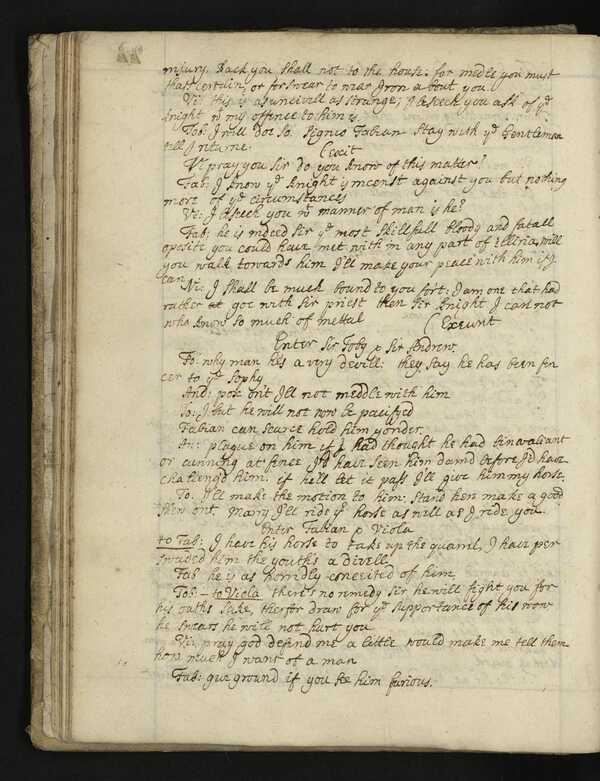 injury. Back you shall not to the house. for medle you must
thats certain, or forswear to wear Iron about you.
Vi: this is as uncivill as strange; I beseek you ask of ye
knight wt my offence to him is.
Tob: I will doe so. Signio Fabian stay with ye Gentleman
till I returne. (exit
Vi: pray you Sir do you know of this matter?
Fab: I know ye knight is incenst against you but nothing
more of ye circumstances
Vi: I beseek you wt manner of man is he?
Fab: he is indeed Sir ye most skillfull bloody and fatall
oposite you could have met with in any part of Illiria, will
you walk towards him I'll make your peace with him if I
can
Vi: I shall be much bound to you for't: I am one that had
rather goe with Sir priest then Sir knight I care not
who knows so much of mettal (Exeunt
Enter Sir Toby & Sir Andrew.
To: why man he's a very devill: they say he has been fen
cer to ye Sophy
And: pox on't I'll not meddle with him
To: I but he will not now be pacifyed
Fabian can scarce hold him yonder
An: plague on him if I had thought he had bin valiant
or cunning at fence I'd have seen him damd before I'd have
challeng'd him. if he'll let it pass I'll give him my horse.
To. I'll make the motion to him: Stand here make a good
shew on't. Marry I'll ride ye horse as well as I ride you.
Enter Fabian & Viola
to Fab: I have his horse to take up the quarril, I have per
swaded him the youth's a divell
Fab he is as horridly conceited of him
Tob - to Viola there's no remidy Sir he will fight you for
his oaths sake, therfor draw for ye supportance of his vow
he swears he will not hurt you
Vi: pray god defend me a little would make me tell them
how much I want of a man
Fab: give ground if you see him furious.